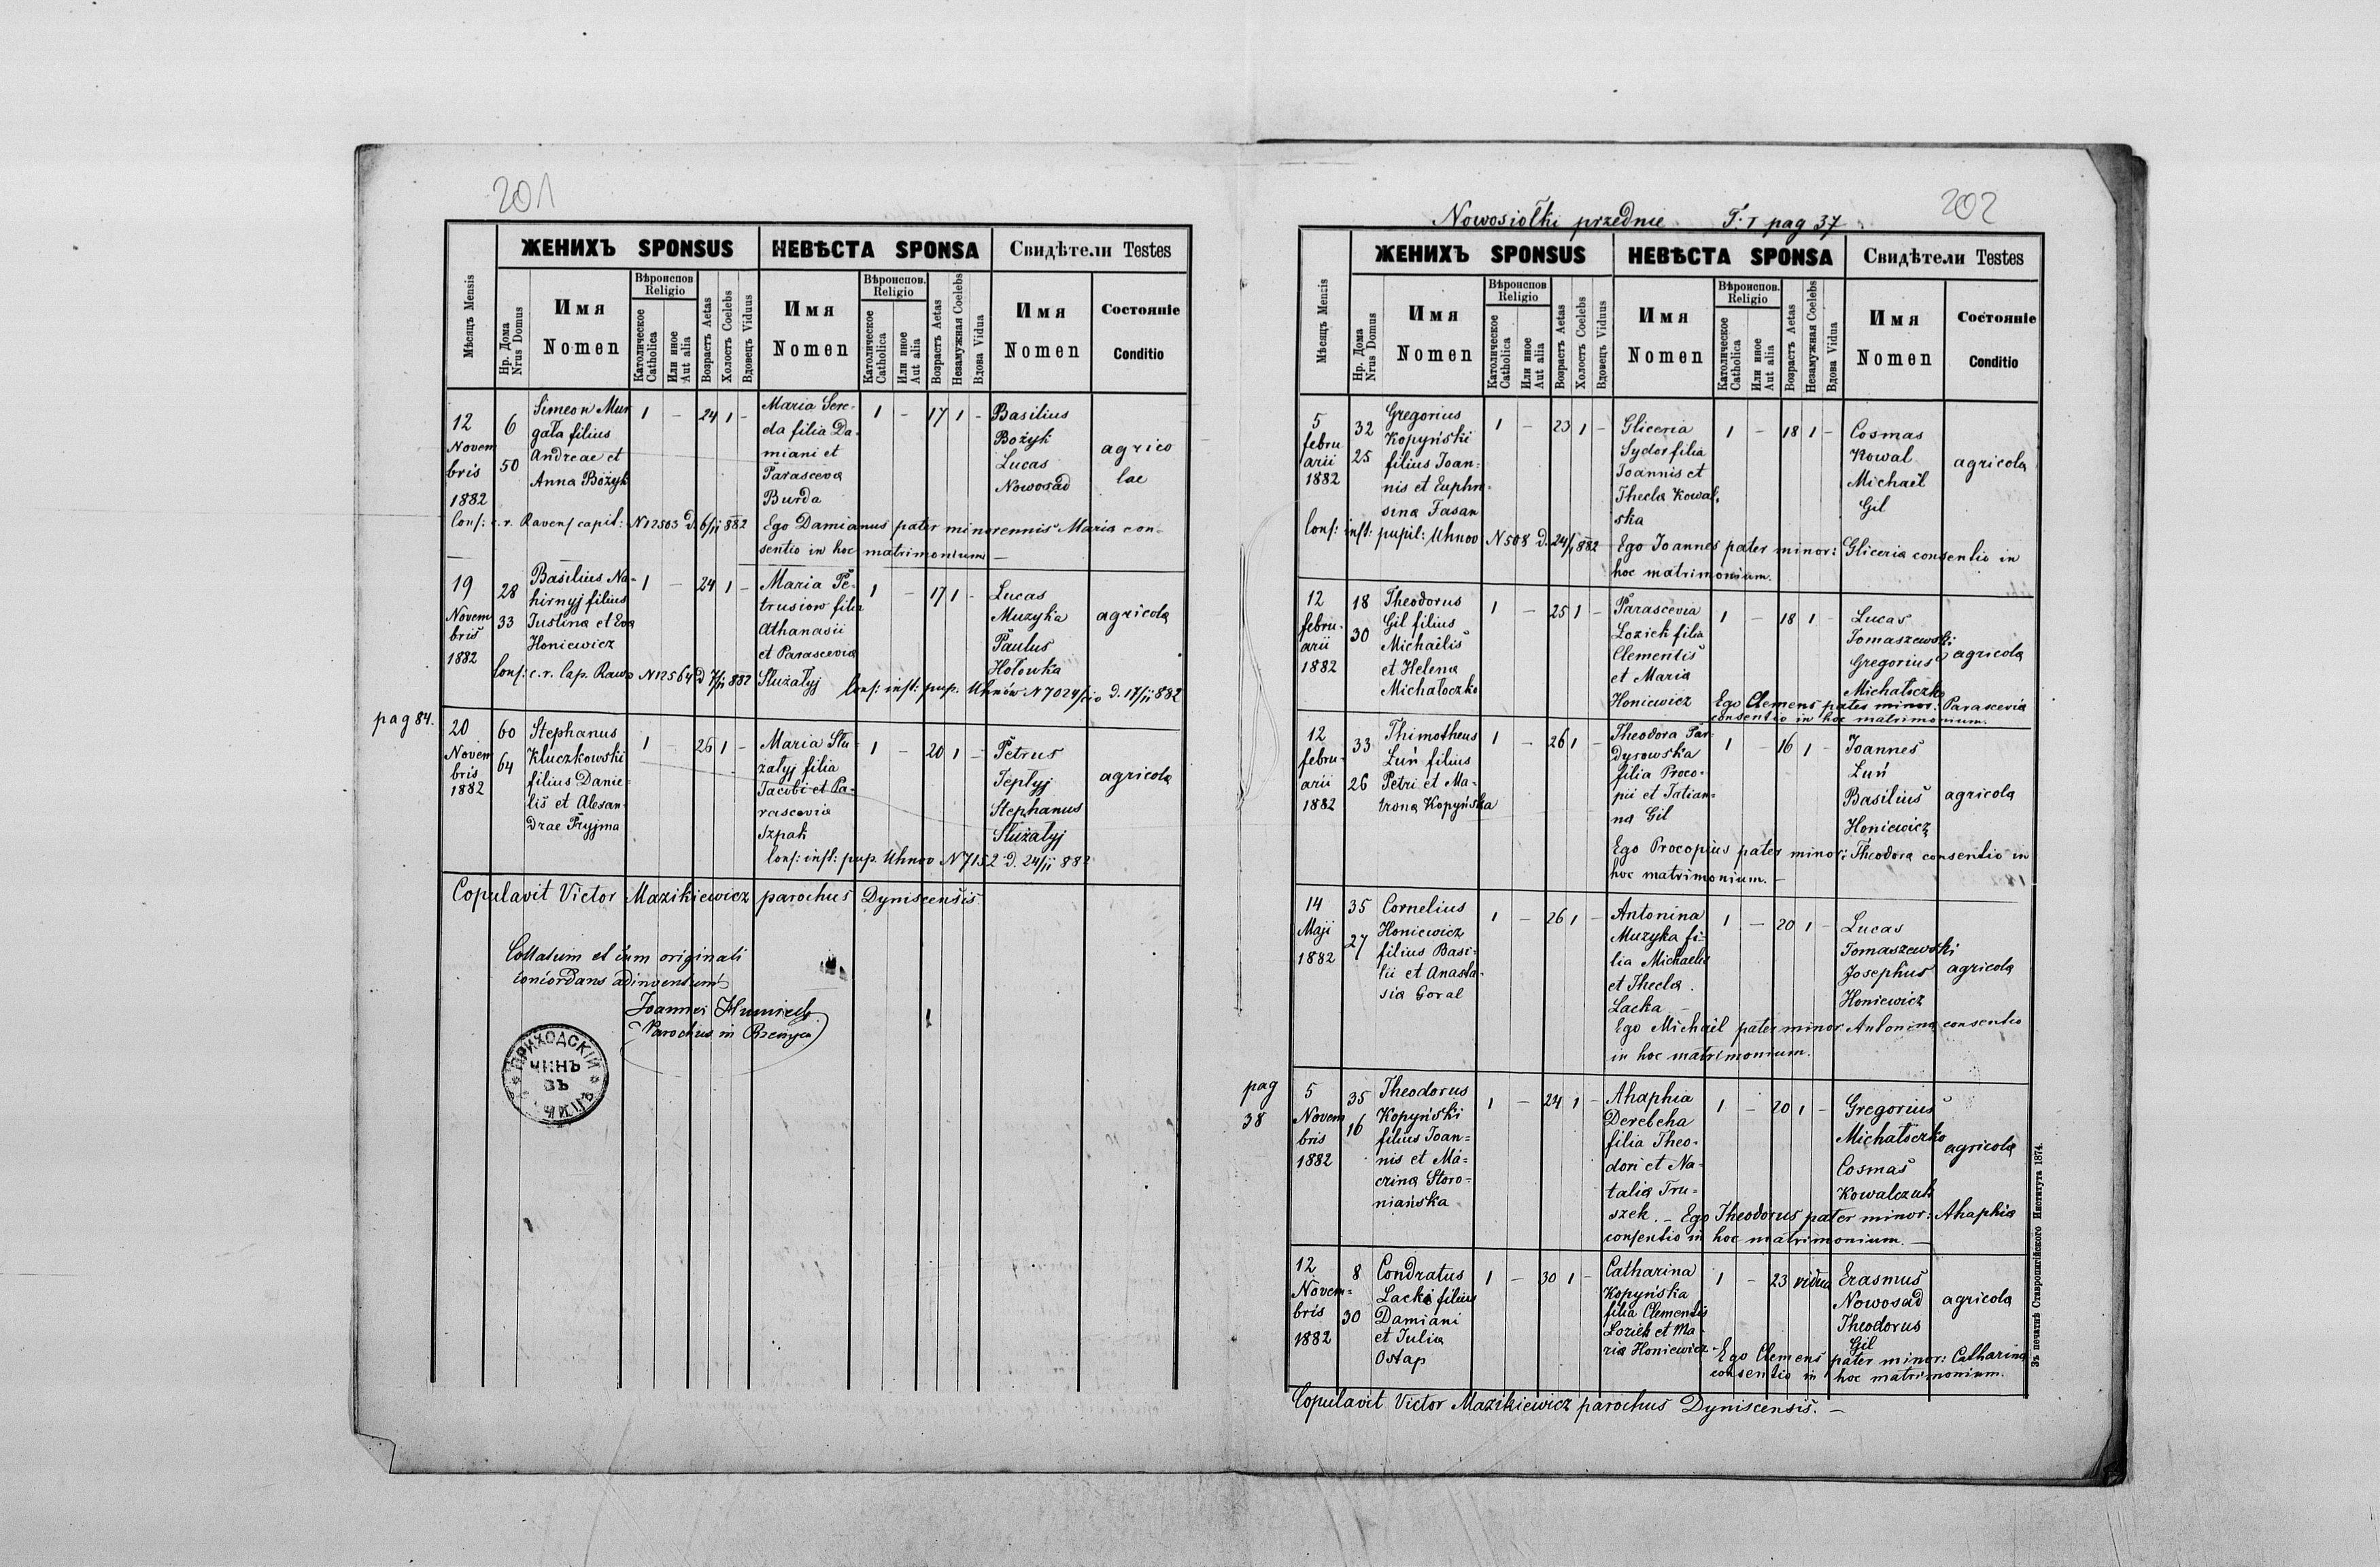 201
ЖЕНИХЪ SPONSUS
НЕВѢСТА SPONSA
Свидѣтели Testes
Мѣсяцъ Mensis
Нр. Дома
Nrus Domus
Имя
Nomen
Вѣроиспов
Religio
Католическое
Catholica
Или иное
Aut alia
Возрастъ Aetas
Холостъ Coelebs
Вдовецъ Viduus
Имя
Nomen
Вѣроиспов.
Religio
Католическое
Catholica
Или иное
Aut alia
Возрастъ Aetas
Незамужная Coelebs
Вдова Vidua
Имя
Nomen
Состояніе
Conditio
12
Novem
bris
1882
6
50
Simeon Mur
gała filius
Andreae et
Anna Bożyk
1 – 24 1 –
Maria Sere-
da filia Da-
miani et
Parasceva
Burda
1 – 17 1 –
Basilius
Bożyk
Lucas
Nowosad
agrico
lae
Conſ: c. r. Ravenſ capit: N 12503 d. 6/11 882
Ego Damianus pater minorennis Maria con-
sentio in hoc matrimonium –
19
Novem
bris
1882
28
33
Basilius Na-
hirnyj filius
Justina et Eva
Honiewicz
1 – 24 1 –
Maria Pe-
trusiow filia
Athanasii
et Parascevia
Służałyj
1 – 17 1 –
Lucas
Muzyka
Paulus
Hołowka
agricola
Conſ: c. r. Cap. Rawa N 12564 d 7/11 882
Conſ: inſt: pup. Uhnów N 7024/ d. 17/11 882
pag 84.
20
Novem
bris
1882
60
64
Stephanus
Kluczkowski
filius Danie-
lis et Alexan-
drae Pryjma
1 – 26 1 –
Maria Słu-
załyj filia
Jacobi et Pa-
rascevia
Szpak
1 – 20 1 –
Petrus
Teptyj
Stephanus
Służałyj
agricola
Conſ: inſt: pup. Uhnov N 7152 d. 24/11 882
Copulavit Victor Mazikiewicz parochus Dyniscensis
Collatum et cum originali
concordans adinventum
Parochus in
ПРИХОДСКІЙ
ЧИНЪ
ВЪ
202
Nowosiołki przednie T. I pag 37
ЖЕНИХЪ SPONSUS
НЕВѢСТА SPONSA
Свидѣтели Testes
Мѣсяцъ Mensis
Нр. Дома
Nrus Domus
Имя
Nomen
Вѣроиспов
Religio
Католическое
Catholica
Или иное
Aut alia
Возрастъ Aetas
Холостъ Coelebs
Вдовецъ Viduus
Имя
Nomen
Вѣроиспов.
Religio
Католическое
Catholica
Или иное
Aut alia
Возрастъ Aetas
Незамужная Coelebs
Вдова Vidua
Имя
Nomen
Состояніе
Conditio
5
febru
arii
1882
32
25
Gregorius
Kopyński
filius Joan-
nis et Euphro-
sina Fasan
1 – 23 1 –
Gliceria
Sydor filia
Joannis et
Thecla Kowal-
ska
1 – 18 1 –
Cosmas
Kowal
Michael
Gil
agricola
Conſ: inſt: pupil: Uhnov N 508 d. 24/1 882
Ego Joannes pater minor: Gliceria consentio in
hoc matrimonium.
12
febru-
arii
1882
18
30
Theodorus
Gil filius
Michaelis
et Helena
Michałoczko
1 – 25 1 –
Parascevia
Lozick filia
Clementis
et Maria
Honiewicz
1 – 18 1 –
Lucas
Tomaszewski
Gregorius
Michałoczko
agricola
Ego Clemens pater minor: Parascevia
consentio in hoc matrimonium.
12
febru-
arii
1882
33
26
Thimotheus
Łuń filius
Petri et Ma-
trona Kopyńska
1 – 26 1 –
Theodora Par-
dysowska
filia Proco-
pii et Tatian-
na Gil
1 – 16 1 –
Joannes
Łuń
Basilius
Honiewicz
agricola
Ego Procopius pater minor: Theodora consentio in
hoc matrimonium. –
14
Maji
1882
35
27
Cornelius
Honiewicz
filius Basi-
lii et Anasta-
sia Goral
1 – 26 1 –
Antonina
Muzyka fi-
lia Michaelis
et Thecla
Lacka –
1 – 20 1 –
Lucas
Tomaszewski
Josephus
Honiewicz
agricola
Ego Michael pater minor Antonina consentio
in hoc matrimonium.
pag
38
5
Novem
bris
1882
35
16
Theodorus
Kopyński
filius Joan-
nis et Ma-
crina Storo-
niańska
1 – 24 1 –
Ahaphia
Derebeha
filia Theo-
dori et Na-
talia Tru-
szek. – Ego Theodorus pater minor: Ahaphia
consentio in hoc matrimonium. –
1 – 20 1 –
Gregorius
Michałoczko
Cosmas
Kowalczuk
agricola
12
Novem-
bris
1882
8
30
Condratus
Lacki filius
Damiani
et Julia
Ostap
1 – 30 1 –
Catharina
Kopyńska
filia Clementis
Lozick et Ma-
ria Honiewicz –
1 – 23 vidua
Erasmus
Nowosad
Theodorus
Gil
agricola
Ego Clemens pater minor: Catharina
consentio in hoc matrimonium.
Copulavit Victor Mazikiewicz parochus Dyniscensis. –
Зъ печатнѣ Ставропигійского Института 1874.